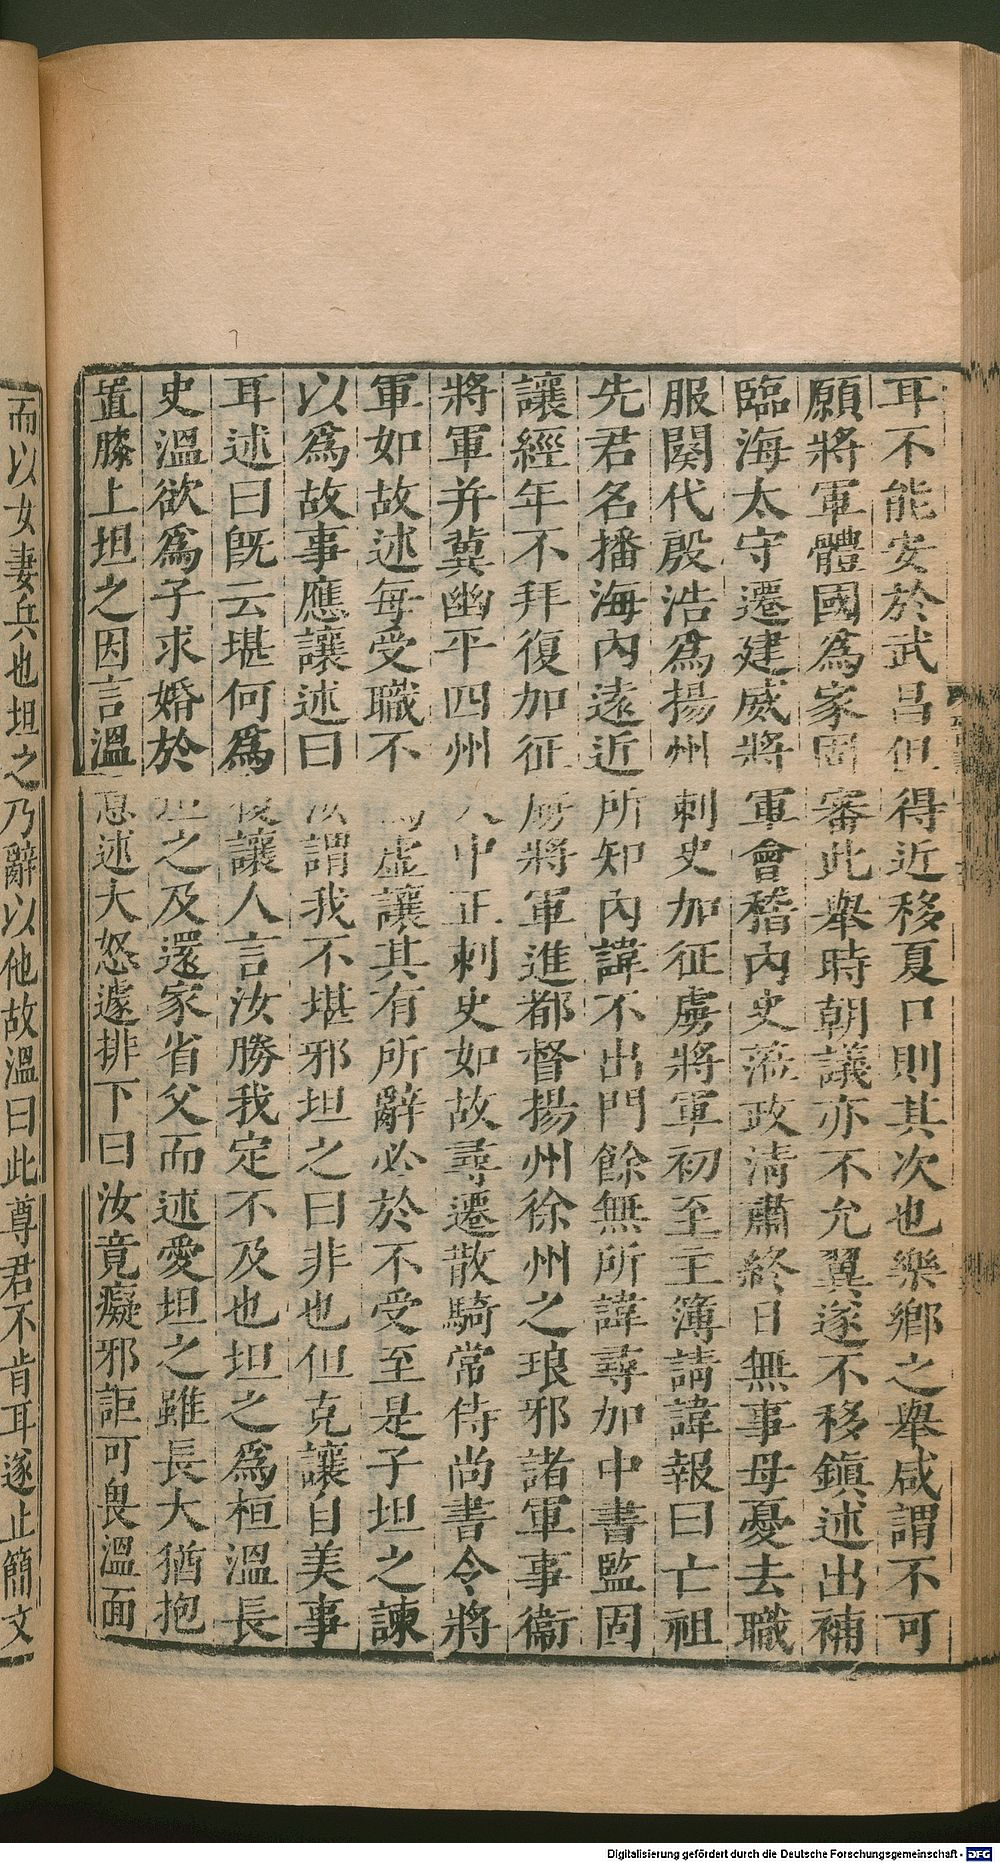 耳不能安於武昌但得近移夏口則其次也樂鄉之舉咸謂不可
願將軍體國爲家固審此舉時朝議亦不允翼遂不移鎮述出補
臨海太守遷建威將軍會稽內史蒞政清肅終日無事母憂去職
服闋代殷浩爲揚州刺史加征虜將軍初至主簿請諱報曰亡祖
先君名播海內遠近所知內諱不出門餘無所諱尋加中書監固
讓經年不拜復加征虜將軍進都督揚州徐州之琅邪諸軍事衞
將軍并冀幽平四州大中正刺史如故尋遷散騎常侍尚書令將
軍如故述每受職不爲虛讓其有所辭必於不受至是子坦之諫
以爲故事應讓述曰汝謂我不堪邪坦之曰非也但克讓自美事
耳述曰旣云堪何爲復讓人言汝勝我定不及也坦之爲桓溫長
史溫欲爲子求婚於坦之及還家省父而述愛坦之雖長大猶抱
置膝上坦之因言溫意述大怒遽排下曰汝竟癡邪詎可畏溫面
而以女妻兵也坦之乃辭以他故溫曰此尊君不肯耳遂止簡文
Digitalisierung gefördert durch die Deutsche Forschungsgemeinschaft - DFG